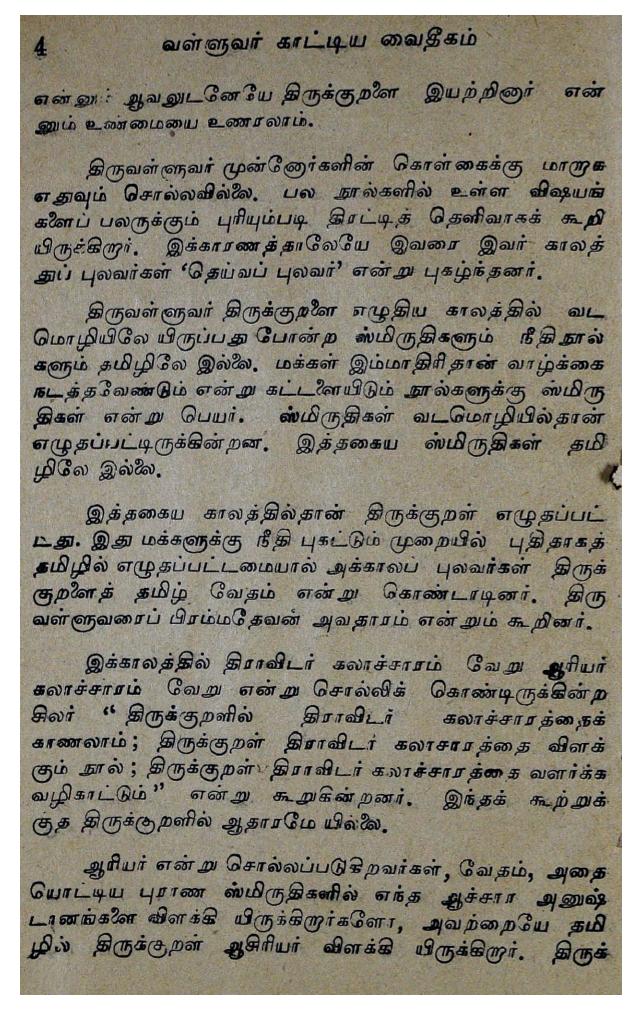 4 வள்ளுவர் காட்டிய வைதீகம்
என்னும் ஆவலுடனேயே திருக்குறளை இயற்றினார் என்
னும் உண்மையை உணரலாம்.
திருவள்ளுவர் முன்னோர்களின் கொள்கைக்கு மாறாக
எதுவும் சொல்லவில்லை. பல நூல்களில் உள்ள விஷயங்
களைப் பலருக்கும் புரியும்படி திரட்டித் தெளிவாகக் கூறி
யிருக்கிறார். இக்காரணத்தாலேயே இவரை இவர் காலத்
துப் புலவர்கள் ‘தெய்வப் புலவர்’ என்று புகழ்ந்தனர்.
திருவள்ளுவர் திருக்குறளை எழுதிய காலத்தில் வட
மொழியிலே யிருப்பது போன்ற ஸ்மிருதிகளும் நீதிநூல்
களும் தமிழிலே இல்லை. மக்கள் இம்மாதிரிதான் வாழ்க்கை
நடத்தவேண்டும் என்று கட்டளையிடும் நூல்களுக்கு ஸ்மிரு
திகள் என்று பெயர். ஸ்மிருதிகள் வடமொழியில்தான்
எழுதப்பட்டிருக்கின்றன. இத்தகைய ஸ்மிருதிகள் தமி
ழிலே இல்லை.
இத்தகைய காலத்தில்தான் திருக்குறள் எழுதப்பட்
டது. இது மக்களுக்கு நீதி புகட்டும் முறையில் புதிதாகத்
தமிழில் எழுதப்பட்டமையால் அக்காலப் புலவர்கள் திருக்
குறளைத் தமிழ் வேதம் என்று கொண்டாடினர். திரு
வள்ளுவரைப் பிரம்மதேவன் அவதாரம் என்றும் கூறினர்.
இக்காலத்தில் திராவிடர் கலாச்சாரம் வேறு ஆரியர்
கலாச்சாரம் வேறு என்று சொல்லிக் கொண்டிருக்கின்ற
சிலர் “திருக்குறளில் திராவிடர் கலாச்சாரத்தைக்
காணலாம்; திருக்குறள் திராவிடர் கலாசாரத்தை விளக்
கும் நூல்; திருக்குறள் திராவிடர் கலாச்சாரத்தை வளர்க்க
வழிகாட்டும்” என்று கூறுகின்றனர். இந்தக் கூற்றுக்
குத் திருக்குறளில் ஆதாரமே யில்லை.
ஆரியர் என்று சொல்லப்படுகிறவர்கள், வேதம், அதை
யொட்டிய புராண ஸ்மிருதிகளில் எந்த ஆச்சார அனுஷ்
டானங்களை விளக்கி யிருக்கிறார்களோ, அவற்றையே தமி
ழில் திருக்குறள் ஆசிரியர் விளக்கி யிருக்கிறார். திருக்